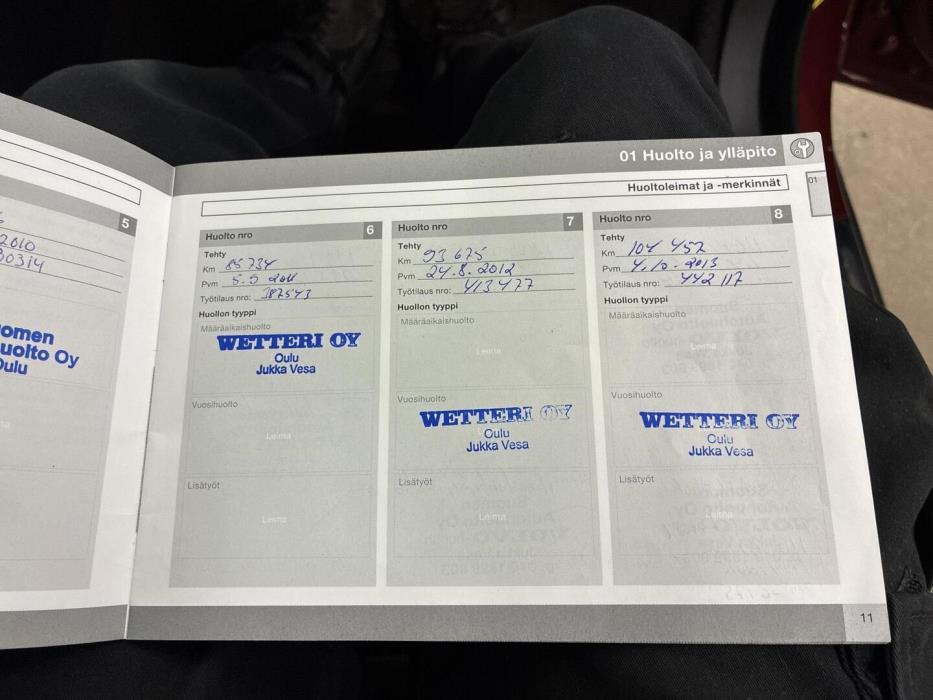 5
2010
30314
omen
uolto Oy
Oulu
01 Huolto ja ylläpito
Huoltoleimat ja -merkinnät
01
Huolto nro 6
Tehty
Km 85 734
Pvm 5.9 2011
Työtilaus nro: 387543
Huollon tyyppi
Määräaikaishuolto
WETTERI OY
Oulu
Jukka Vesa
Vuosihuolto
Leima
Lisätyöt
Leima
Huolto nro 7
Tehty
Km 93 675
Pvm 24.8.2012
Työtilaus nro: 413477
Huollon tyyppi
Määräaikaishuolto
Leima
Vuosihuolto
WETTERI OY
Oulu
Jukka Vesa
Lisätyöt
Leima
Huolto nro 8
Tehty
Km 104 452
Pvm 4.10.2013
Työtilaus nro: 442117
Huollon tyyppi
Määräaikaishuolto
Leima
Vuosihuolto
WETTERI OY
Oulu
Jukka Vesa
Lisätyöt
Leima
11